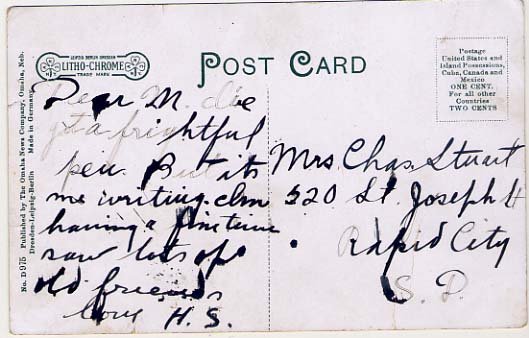 LEIPZIG BERLIN DRESDEN
LITHO-CHROME
TRADE MARK
POST CARD
Postage
United States and
Island Possessions,
Cuba, Canada and
Mexico
ONE CENT.
For all other
Countries
TWO CENTS
No. D 975 Published by The Omaha News Company, Omaha, Neb.
Dresden-Leipzig-Berlin Made in Germany
Dear M. I've
got a frightful
pen. But its
me writing. Am
having a fine time
saw lots of
old friends
Love H. S.
Mrs. Chas. Stuart
520 St. Joseph St
Rapid City
S. D.